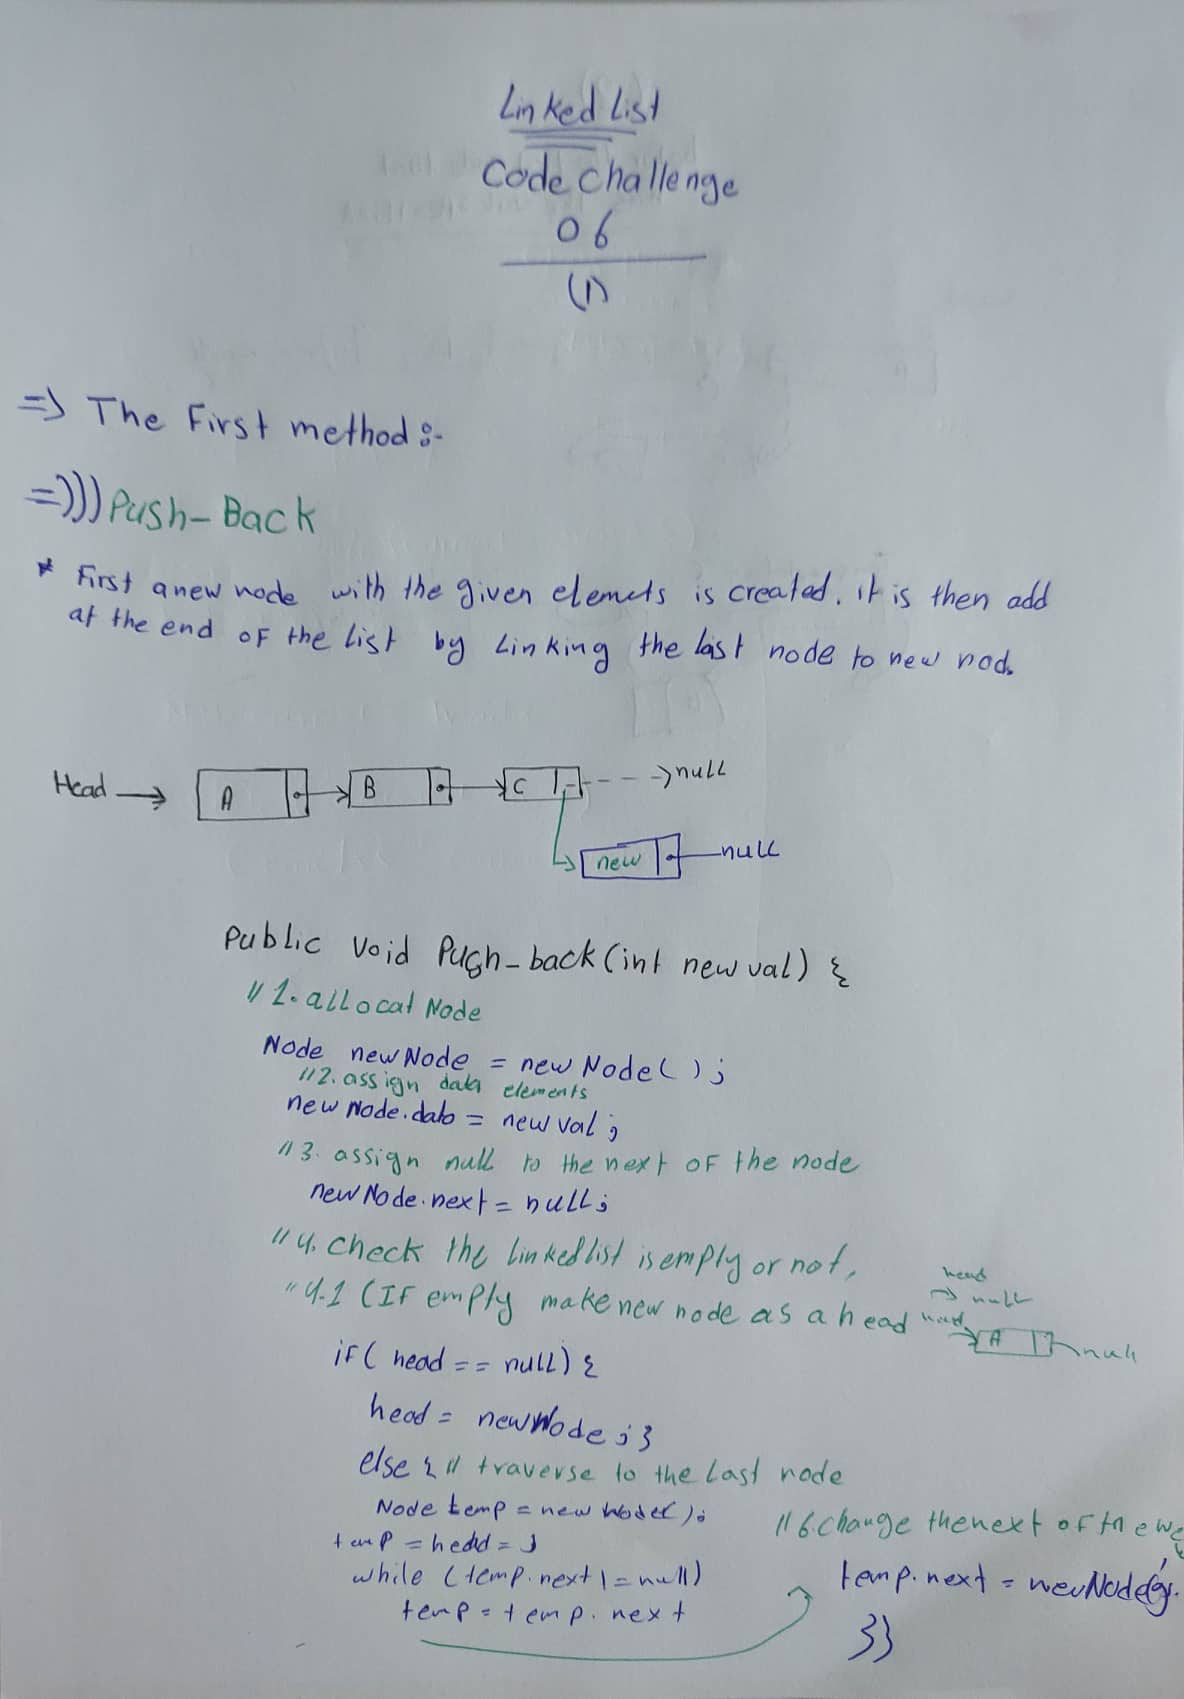 Linked List
Code challenge
06
(1)
=> The First method :-
=>))) Push-Back
* First a new node with the given elemets is created. it is then add
at the end of the list by Linking the last node to new nod.
Head → A B C --→ null
new null
Public void Push_back(int new val) {
// 1. allocat Node
Node newNode = new Node( );
// 2. assign data elements
new Node.data = new val;
// 3. assign null to the next of the node
new Node.next = null;
// 4. Check the linked list is emply or not,
// 4.1 (If empty make new node as a head
head
→ null
head
A null
if( head == null) {
head = newNode ; }
else { // traverse to the last node
Node temp = new Node( );
temp = head = ;
while (temp.next != null)
temp = temp.next
// 6. change the next of the
temp.next = newNode;
}}